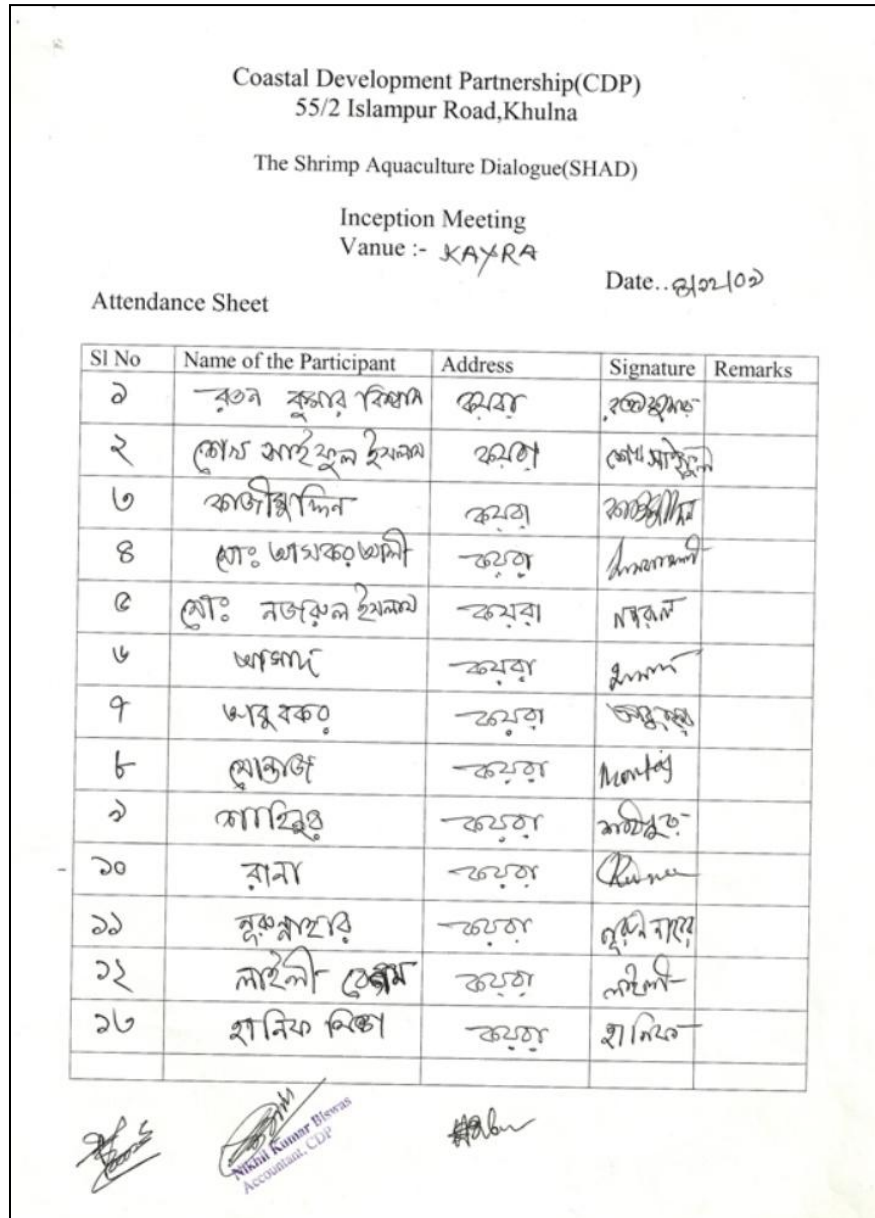 Coastal Development Partnership(CDP)
55/2 Islampur Road,Khulna
The Shrimp Aquaculture Dialogue(SHAD)
Inception Meeting
Vanue :- KAYRA
Date..
Attendance Sheet
Sl No Name of the Participant Address Signature Remarks
১ রতন কুমার বিশ্বাস কয়রা
২ শেখ সাইফুল ইসলাম কয়রা শেখ সাইফুল
৩ কাজীমুদ্দিন কয়রা
৪ মোঃ আসকর আলী কয়রা
৫ মোঃ নজরুল ইসলাম কয়রা নজরুল
৬ আসাদ কয়রা
৭ আবু বকর কয়রা
৮ মোন্তাজ কয়রা Montaj
৯ শাহিনুর কয়রা
১০ রানা কয়রা Rana
১১ নূরুন্নাহার কয়রা
১২ লাইলী বেগম কয়রা লাইলী
১৩ হানিফ মিস্ত্রী কয়রা হানিফ
Nikhil Kumar Biswas
Accountant, CDP